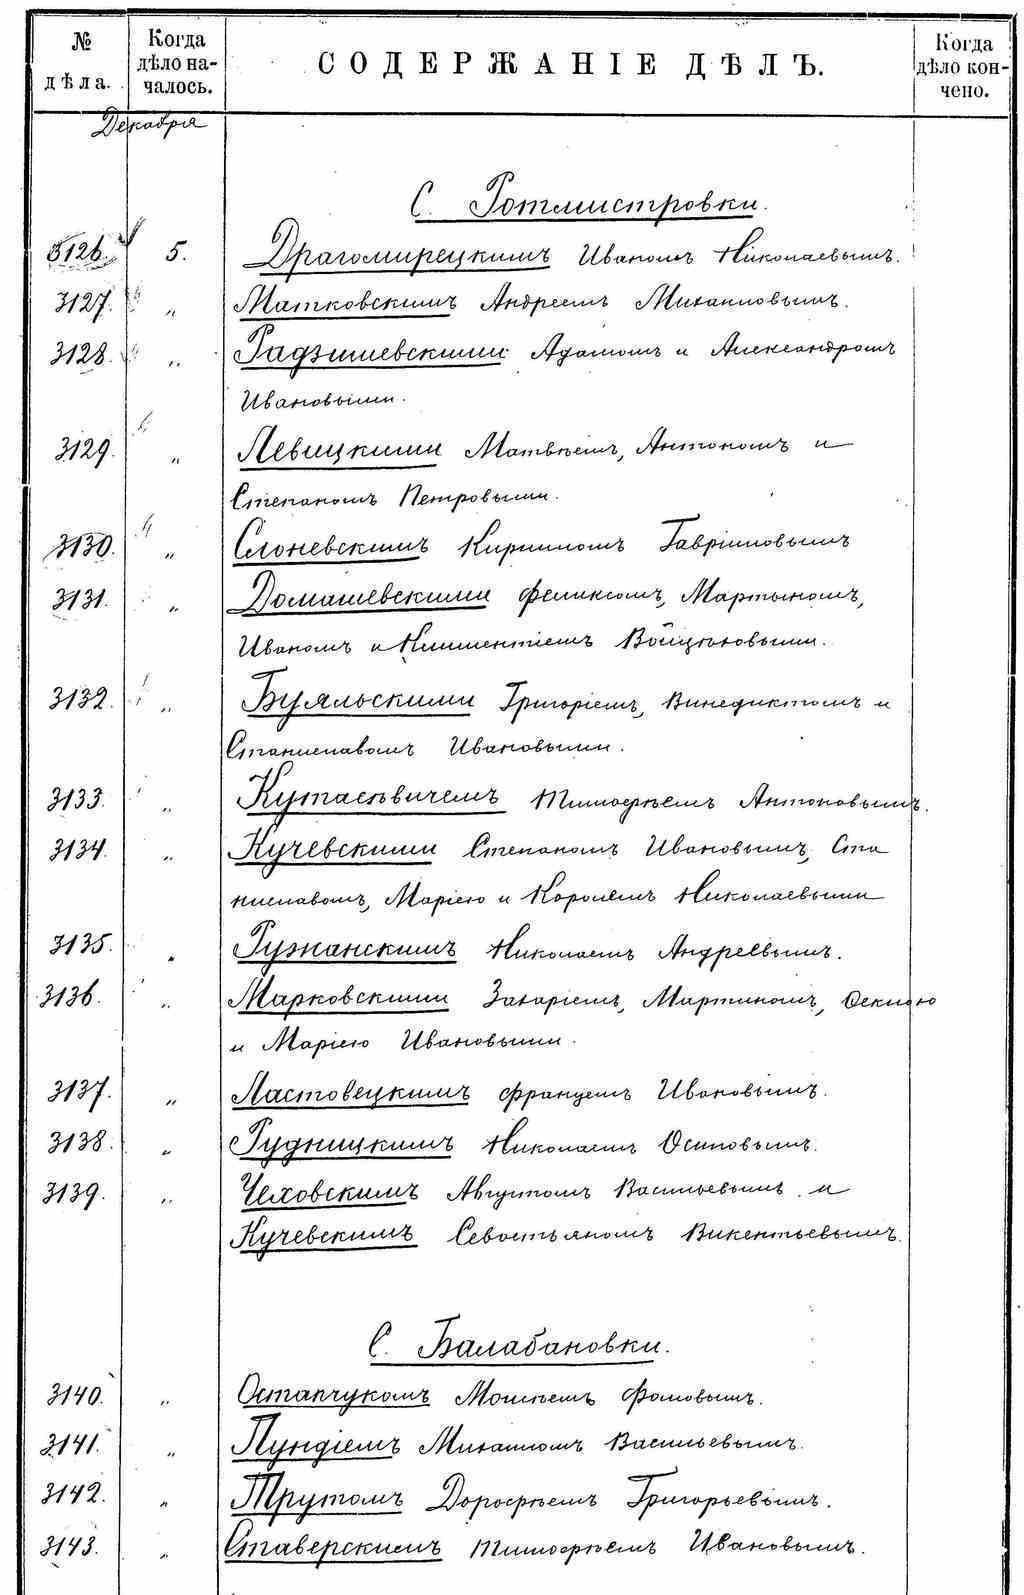 № дѣла. Когда дѣло началось. СОДЕРЖАНІЕ ДѢЛЪ. Когда дѣло кончено.
Декабря
С. Ротмистровки.
3126. 5. Драгомирецкимъ Иваномъ Николаевымъ.
3127. „ Матковскимъ Андреемъ Михаиловымъ.
3128. „ Радзишевскими Адамомъ и Александромъ
Ивановыми.
3129. „ Левицкими Матвѣемъ, Антономъ и
Степаномъ Петровыми.
3130. „ Слоневскимъ Кирилломъ Гавріиловымъ
3131. „ Домашевскими Феликсомъ, Мартыномъ,
Иваномъ и Климентіемъ Войцѣховыми.
3132. „ Буяльскими Григоріемъ, Винедиктомъ и
Станиславомъ Ивановыми.
3133. „ Кутасѣвичемъ Тимофѣемъ Антоновымъ.
3134. „ Кучевскими Степаномъ Ивановымъ, Ста
ниславомъ, Маріею и Каролемъ Николаевыми
3135. „ Ружанскимъ Николаемъ Андреевымъ.
3136. „ Марковскими Захаріемъ, Мартиномъ, Феклою
и Маріею Ивановыми.
3137. „ Ластовецкимъ Францемъ Ивановымъ.
3138. „ Рудницкимъ Николаемъ Осиповымъ.
3139. „ Чеховскимъ Августомъ Васильевымъ и
Кучевскимъ Севостьяномъ Викентьевымъ.
С. Балабановки.
3140. „ Остапчукомъ Мошѣемъ Фомовымъ.
3141. „ Пундіемъ Михаиломъ Васильевымъ.
3142. „ Трутомъ Дорофѣемъ Григорьевымъ.
3143. „ Ставерскимъ Тимофѣемъ Ивановымъ.